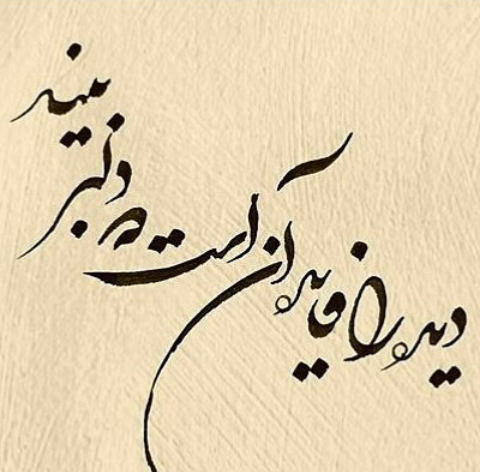 دیده را فایده آن است که دلبر بیند